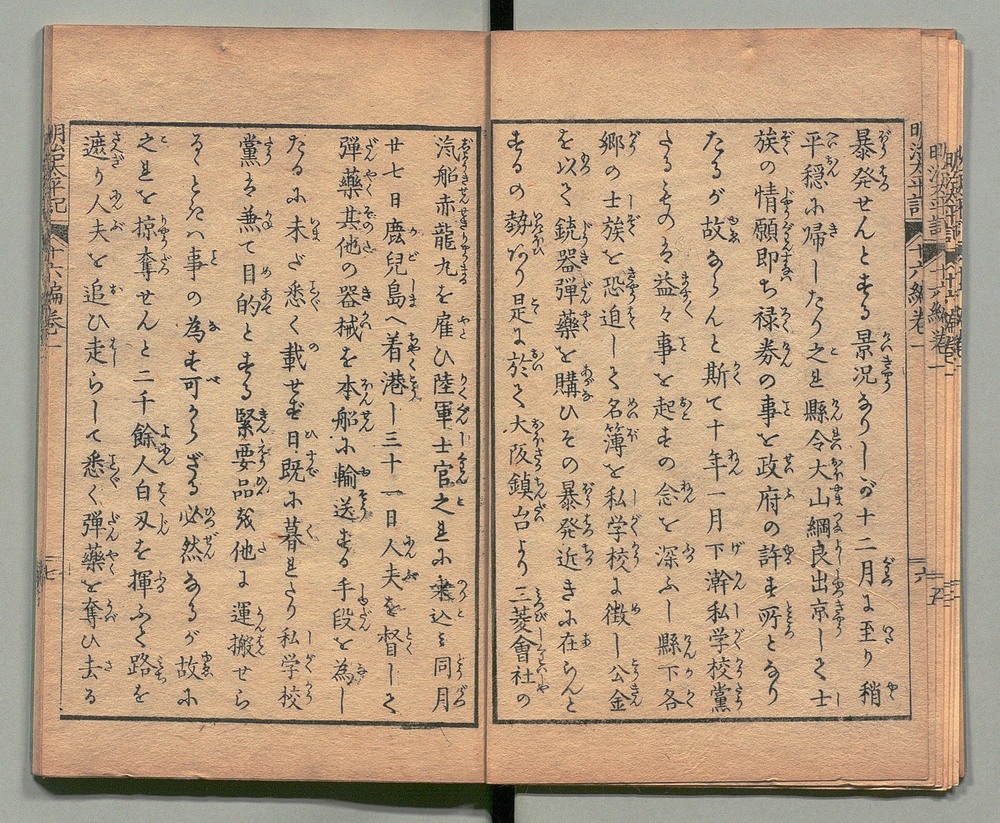 明治太平記 十六編卷一 六
暴発せんとする景況ありしが十二月に至り稍
平穏に帰したり之れ縣令大山綱良出京して士
族の情願即ち禄券の事を政府の許す所となり
たるが故ならんと斯て十年一月下澣私学校黨
さるもの益々事を起すの念を深ふし縣下各
郷の士族を恐迫して名簿を私学校に徴し公金
を以て銃器弾藥を購ひその暴発近きに在らんと
するの勢なり是に於て大阪鎮台より三菱會社の
汽船赤龍丸を雇ひ陸軍士官之れに乗込み同月
廿七日鹿兒島へ着港し三十一日人夫を督して
弾藥其他の器械を本船に輸送する手段を為し
たるに未だ悉く載せず日既に暮れたり私学校
黨は兼て目的とする緊要品或他に運搬せら
るゝときは事の為す可からざる必然なるが故に
之れを掠奪せんと二千餘人白刃を揮ふて路を
遮り人夫を追ひ走らして悉く弾藥を奪ひ去る
明治太平記 十六編卷一 七